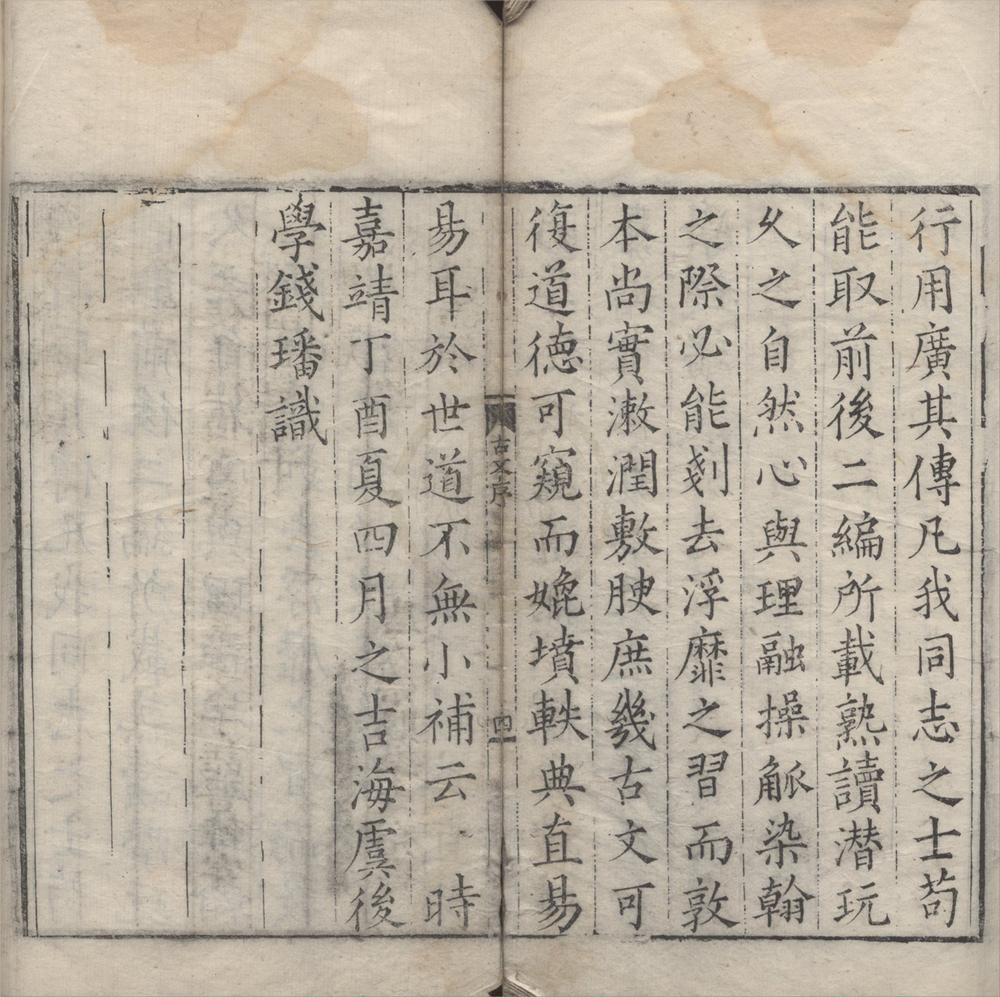 行用廣其傳凡我同志之士苟
能取前後二編所載熟讀潜玩
乆之自然心與理融操觚染翰
之際必能剗去浮靡之習而敦
本尚實漱潤敷腴庶幾古文可
復道德可窺而媲墳軼典直易
古文序
四
易耳於世道不無小補云 時
嘉靖丁酉夏四月之吉海虞後
學錢璠識